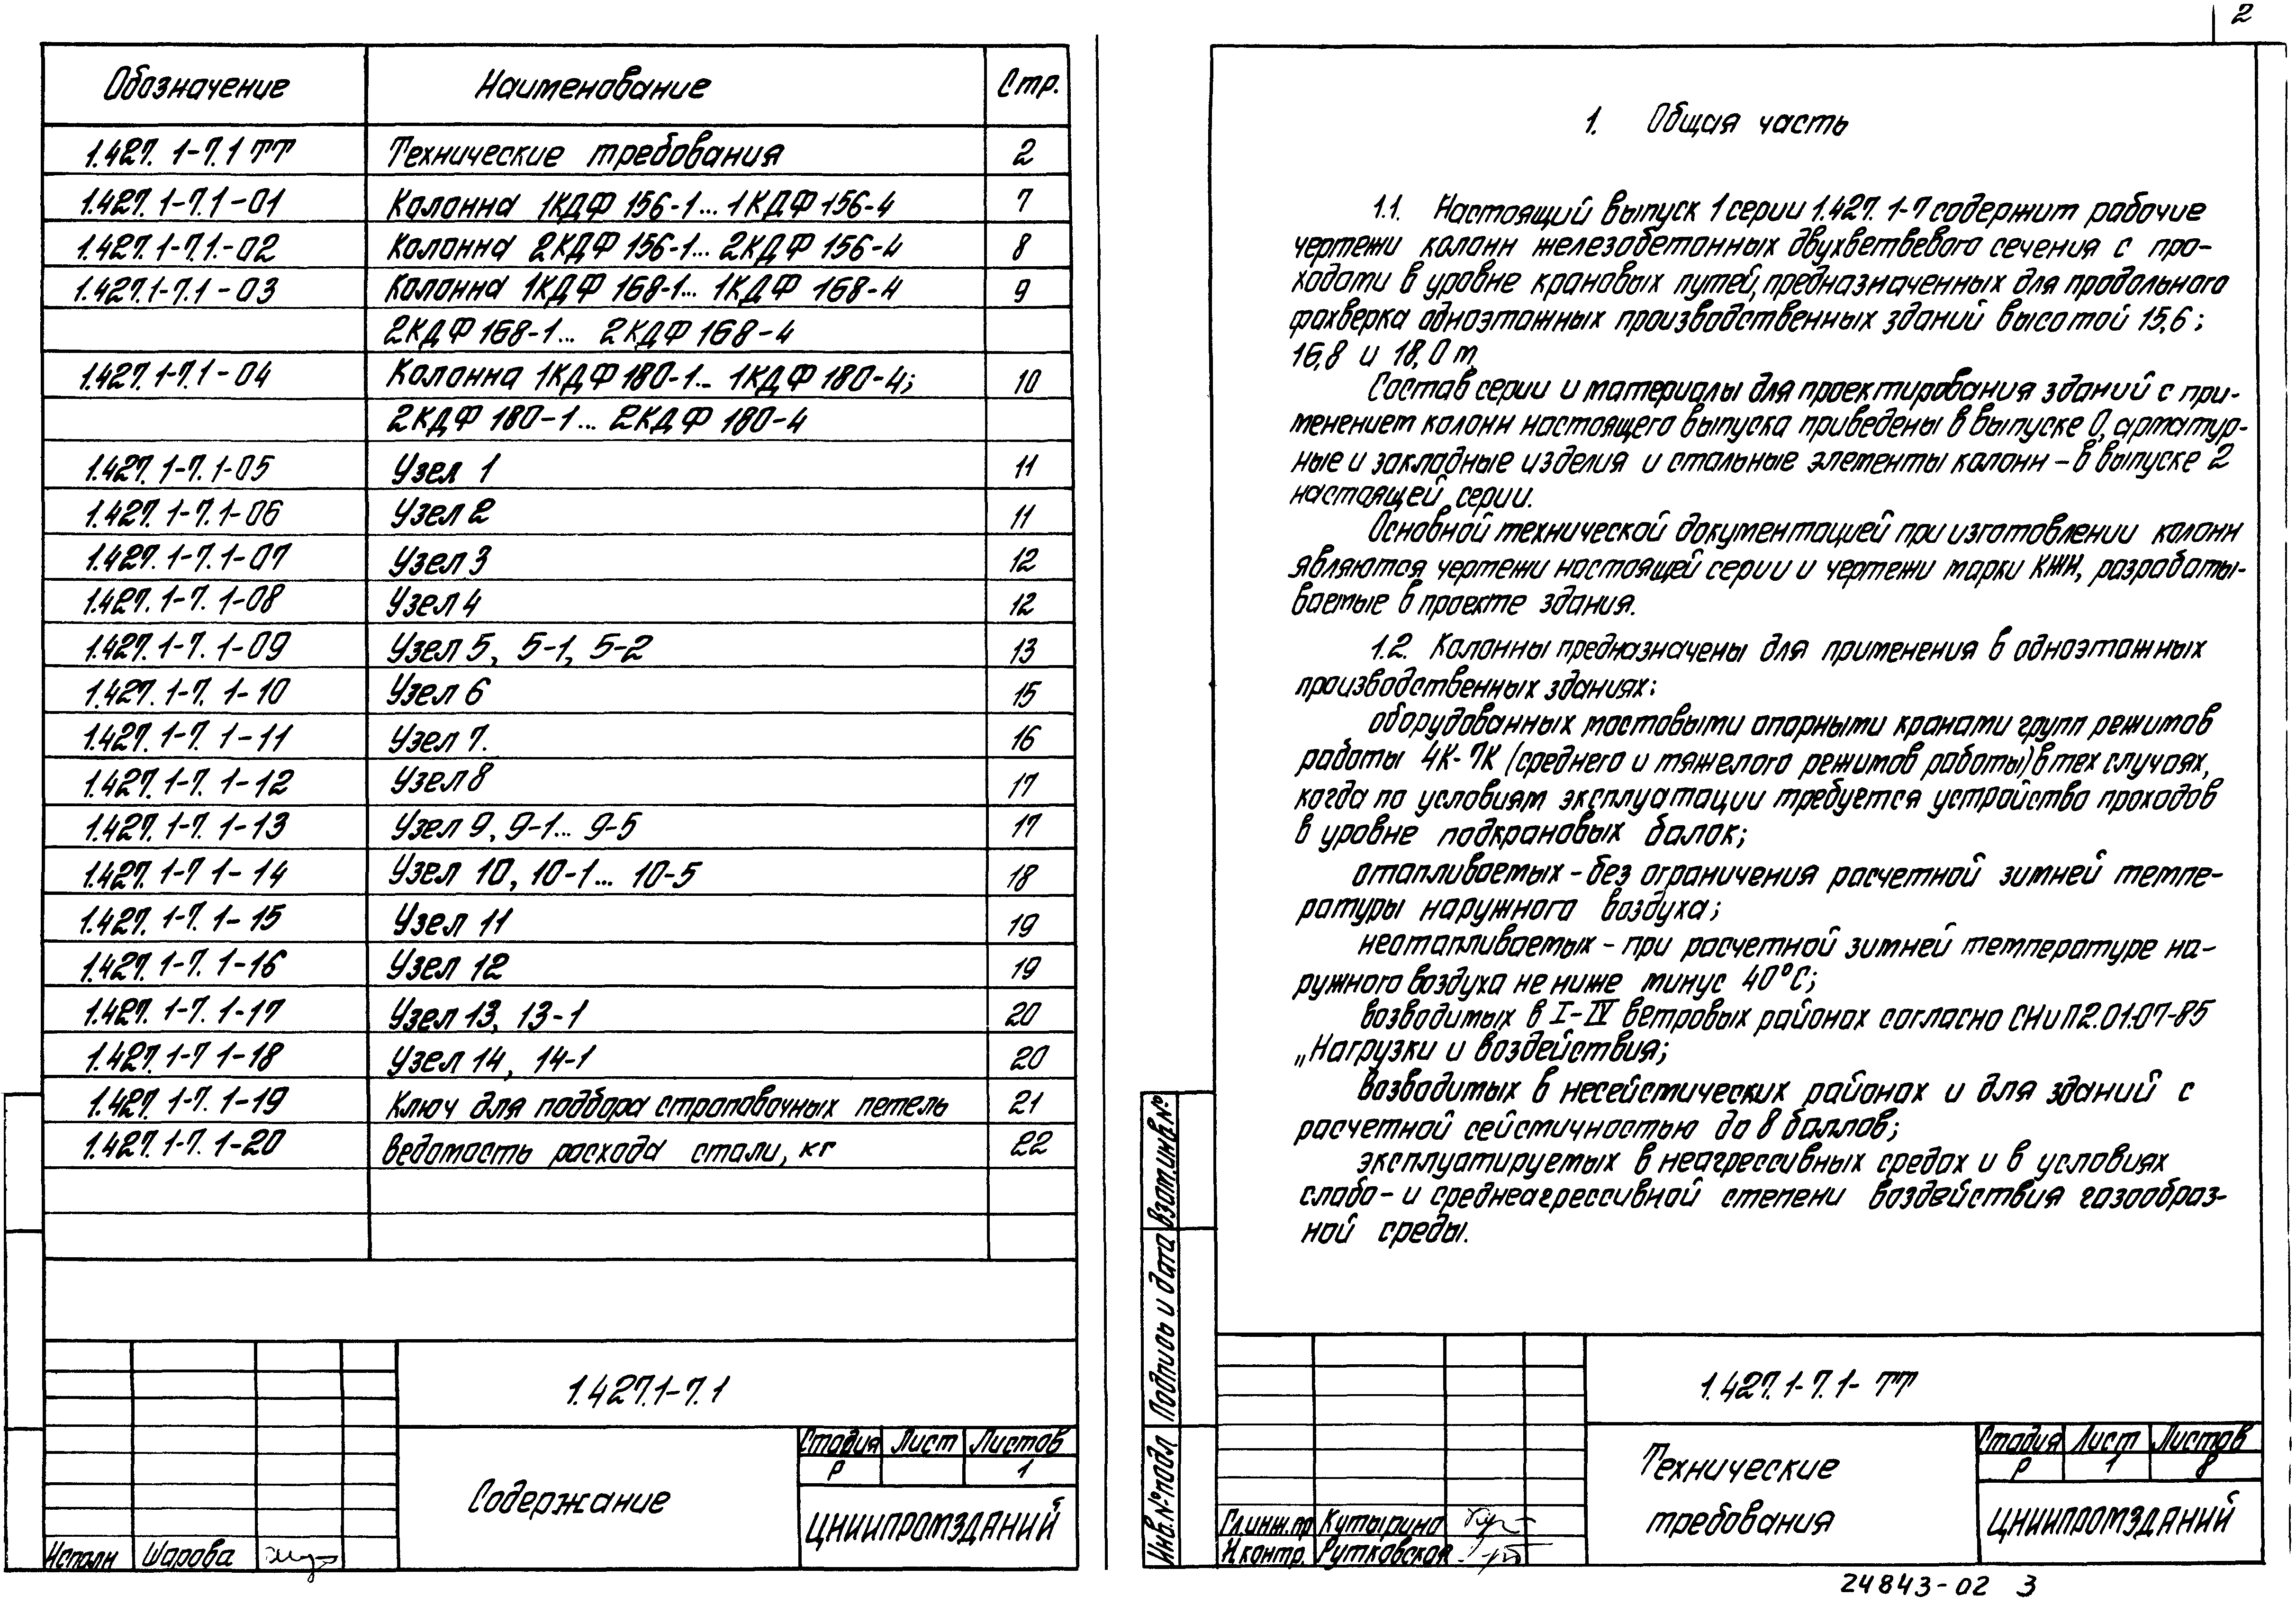 Обозначение Наименование Стр.
1.427.1-7.1 ТТ Технические требования 2
1.427.1-7.1-01 Колонна 1КДФ 156-1... 1КДФ 156-4 7
1.427.1-7.1-02 Колонна 2КДФ 156-1... 2КДФ 156-4 8
1.427.1-7.1-03 Колонна 1КДФ 168-1... 1КДФ 168-4 9
2КДФ 168-1... 2КДФ 168-4
1.427.1-7.1-04 Колонна 1КДФ 180-1... 1КДФ 180-4; 10
2КДФ 180-1... 2КДФ 180-4
1.427.1-7.1-05 Узел 1 11
1.427.1-7.1-06 Узел 2 11
1.427.1-7.1-07 Узел 3 12
1.427.1-7.1-08 Узел 4 12
1.427.1-7.1-09 Узел 5, 5-1, 5-2 13
1.427.1-7.1-10 Узел 6 15
1.427.1-7.1-11 Узел 7. 16
1.427.1-7.1-12 Узел 8 17
1.427.1-7.1-13 Узел 9, 9-1... 9-5 17
1.427.1-7.1-14 Узел 10, 10-1... 10-5 18
1.427.1-7.1-15 Узел 11 19
1.427.1-7.1-16 Узел 12 19
1.427.1-7.1-17 Узел 13, 13-1 20
1.427.1-7.1-18 Узел 14, 14-1 20
1.427.1-7.1-19 Ключ для подбора строповочных петель 21
1.427.1-7.1-20 Ведомость расхода стали, кг 22
1.427.1-7.1
Содержание
Стадия Лист Листов
Р 1
ЦНИИПРОМЗДАНИЙ
Исполн Шарова
2
1. Общая часть
1.1. Настоящий выпуск 1 серии 1.427.1-7 содержит рабочие
чертежи колонн железобетонных двухветвевого сечения с про-
ходами в уровне крановых путей, предназначенных для продольного
фахверка одноэтажных производственных зданий высотой 15,6;
16,8 и 18,0 м.
Состав серии и материалы для проектирования зданий с при-
менением колонн настоящего выпуска приведены в выпуске 0, арматур-
ные и закладные изделия и стальные элементы колонн - в выпуске 2
настоящей серии.
Основной технической документацией при изготовлении колонн
являются чертежи настоящей серии и чертежи марки КЖИ, разрабаты-
ваемые в проекте здания.
1.2. Колонны предназначены для применения в одноэтажных
производственных зданиях:
оборудованных мостовыми опорными кранами групп режимов
работы 4К-7К (среднего и тяжелого режимов работы) в тех случаях,
когда по условиям эксплуатации требуется устройство проходов
в уровне подкрановых балок;
отапливаемых - без ограничения расчетной зимней темпе-
ратуры наружного воздуха;
неотапливаемых - при расчетной зимней температуре на-
ружного воздуха не ниже минус 40°С;
возводимых в I-IV ветровых районах согласно СНиП 2.01.07-85
„Нагрузки и воздействия;
возводимых в несейсмических районах и для зданий с
расчетной сейсмичностью до 8 баллов;
эксплуатируемых в неагрессивных средах и в условиях
слабо- и среднеагрессивной степени воздействия газообраз-
ной среды.
Взам.инв.№
Подпись и дата
Инв.№ подл
1.427.1-7.1-ТТ
Технические
требования
Стадия Лист Листов
Р 1 8
ЦНИИПРОМЗДАНИЙ
Гл.инж.пр Кутырина
Н.контр. Рутковская
24843-02 3